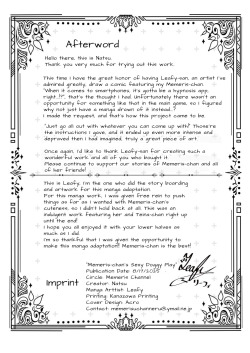 Afterword
Hello there, this is Natsu.
Thank you very much for trying out this work.
This time I have the great honor of having Leafy-san, an artist I've
admired greatly, draw a comic featuring my Memeris-chan.
"When it comes to smartphones, it's gotta be a hypnosis app,
right...?", that's the thought I had. Unfortunately there wasn't an
opportunity for something like that in the main game, so I figured
why not just have a manga drawn of it instead..?
I made the request, and that's how this project came to be.
"Just go all out with whatever you can come up with!" Those're
the instructions I gave, and it ended up even more intense and
depraved than I had imagined, truly a great piece of art.
Once again, I'd like to thank Leafy-san for creating such a
wonderful work and all of you who bought it.
Please continue to support our stories of Memeris-chan and all
of her friends!
This is Leafy, I'm the one who did the story boarding
and artwork for this manga adaptation.
For this manga work, I was given free rein to push
things as far as I wanted with Memeris-chan's
cuteness, so I didn't hold back at all. This was an
indulgent work featuring her and Teina-chan right up
until the end.
I hope you all enjoyed it with your lower halves as
much as I did.
I'm so thankful that I was given the opportunity to
make this manga adaptation! Memeris-chan is the best!
Leafy
Imprint
"Memeris-chan's Sexy Doggy Play"
Publication Date: 8/17/2025
Circle: Memeris Channel
Creator: Natsu
Manga Artist: Leafy
Printing: Kanazawa Printing
Cover Design: Acro